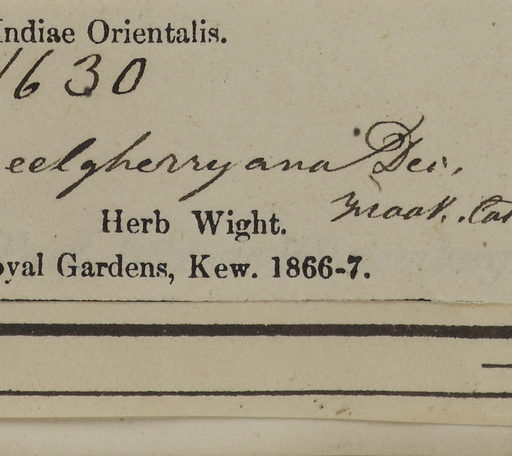 Indiae Orientalis.
1630
eelgherryana Dec.
Herb Wight.
oyal Gardens, Kew. 1866-7.